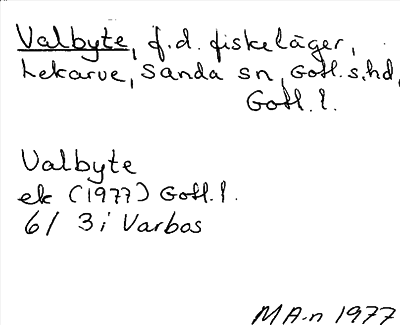 Valbyte, f.d. fiskeläger,
Lekarve, Sanda sn, Gotl. s. hd,
Gotl. l.
Valbyte
ek (1977) Gotl. l.
6/ 3 i Varbos
MA-n 1977